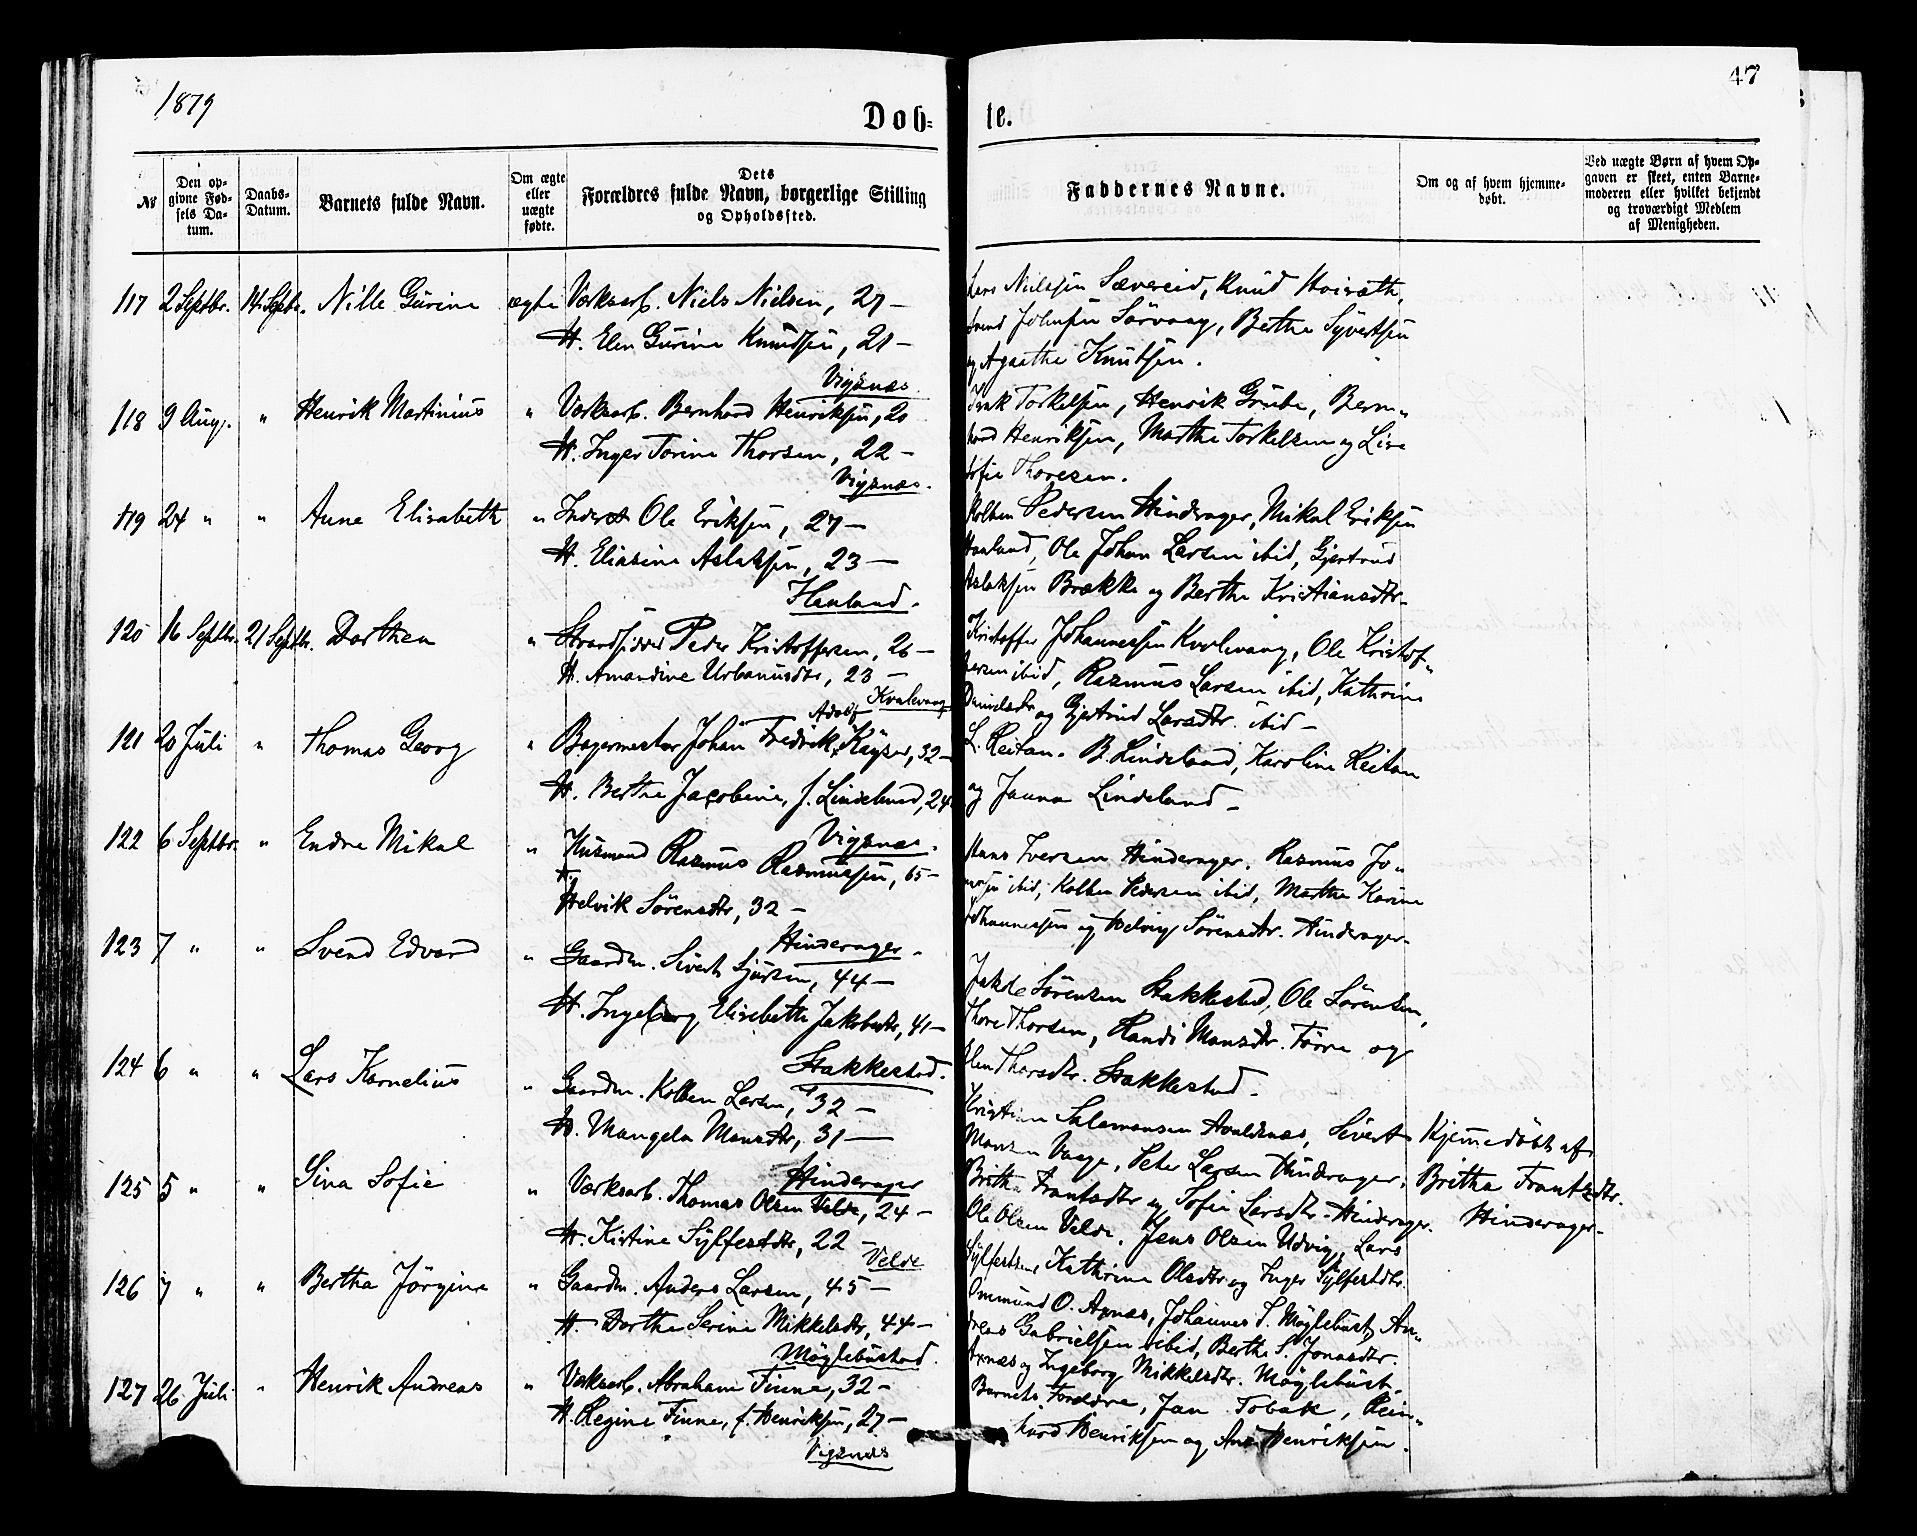 1879
47
Døb=
te.
No
Den op-
givne Fød-
sels Da-
tum.
Daabs-
Datum.
Barnets fulde Navn.
Om ægte
eller
uægte
fødte.
Dets
Forældres fulde Navn, borgerlige Stilling
og Opholdssted.
Faddernes Navne.
Om og af hvem hjemme-
døbt.
Ved uægte Børn af hvem Op-
gaven er skeet, enten Barne-
moderen eller hvilket bekjendt
og troværdigt Medlem
af Menigheden.
117 2 Septbr. 14 Septbr. Nille Gurine ægte Værksarb. Niels Nielsen, 27 –
H. Elen Gurine Knudsen, 21 –
Vigsnæs
Lars Nielsen Sævereid, Knud
Svend Johnsen Sørvaag, Berthe Syvertsen
og Agathe Knutsen.
118 9 Aug. " Henrik Martinius " Værksarb. Bernhard Henriksen, 20
H. Inger Torine Thorsen, 22 –
Vigsnæs.
Torkelsen, Henrik Grube, Bern-
hard Henriksen, Marthe Torkelsen og Lise
Sofie Thoresen.
119 24 " " Anne Elisabeth " Inderst Ole Eriksen, 27 –
H. Eliasine Aslaksen, 23 –
Hauland.
Kolben Pedersen Hinderager, Mikal Eriksen
Hauland, Ole Johan Larsen ibid, Gjertrud
Aslaksen Brække og Berthe Kristiansdtr.
120 16 Septbr. 21 Septbr. Dorthea " Strandsidder Peder Kristoffersen, 26 –
H. Amandine Urbanusdtr, 23 –
Kvalevaag
Kristoffer Johannessen Kvalevaag, Ole Kristof-
fersen ibid, Rasmus Larsen ibid, Kathrine
Danielsdtr og Gjertrud Larsdtr. ibid –
121 20 Juli " Thomas Georg " Bagermester Johan Fredrik Adolf Kayser, 32 –
H. Berthe Jacobine, f. Lindeland, 24
Vigsnæs.
L. Reitan. B. Lindeland, Karoline Reitan
og Janna Lindeland –
122 6 Septbr. " Endre Mikal " Husmand Rasmus Rasmussen, 65 –
H. Helvik Sørensdtr, 32 –
Hinderager.
Hans Iversen Hinderager. Rasmus Jo-
nasen ibid, Kolben Pedersen ibid, Marthe Karine
Johannessen og Helvig Sørensdtr. Hinderager.
123 7 " " Svend Edvard " Gaardm. Sivert Sjursen, 44 –
H. Ingeborg Elisabeth Jakobsdtr, 41 –
Stakkestad.
Sørensen Stakkestad, Ole Sørensen,
Thore Thorsen, Randi Mansdtr. Førre og
Elen Thorsdtr. Stakkestad –
124 6 " " Lars Kornelius " Gaardm. Kolben Larsen, 32 –
H. Mangela Mansdtr, 31 –
Hinderager
Kristian Salamonsen Avaldsnæs, Sivert
Monsen Vaage, Peter Larsen Hinderager,
Britha Frantsdtr og Sofie Larsdtr. Hinderager.
Hjemmedøbt af
Britha Frantzdtr.
Hinderager –
125 5 " " Sina Sofie " Værksarb. Thomas Olsen Velde, 24 –
H. Kistine Sylfestdtr, 22 –
Velde
Ole Olsen Velde. Jens Olsen Udvig, Lars
Sylfestsen, Kathrine Olsdtr og Inger Sylfestdtr.
126 7 " " Bertha Jørgine " Gaardm. Anders Larsen, 45 –
H. Dorthe Serine Mikkelsdtr, 44 –
Møglebustad.
Ommund O. Axnæs, Johannes S. Møglebust, An-
dreas Gabrielsen ibid, Berthe S. Jonasdtr.
Axnæs og Ingeborg Mikkelsdtr. Møglebust.
127 26 Juli " Henrik Andreas " Værksarb. Abraham Finne, 32 –
H. Regine Finne, f. Henriksen, 27 –
Vigsnæs
Barnets Forældre, Jan Tobak, Rein-
hard Henriksen og Ane Henriksen.